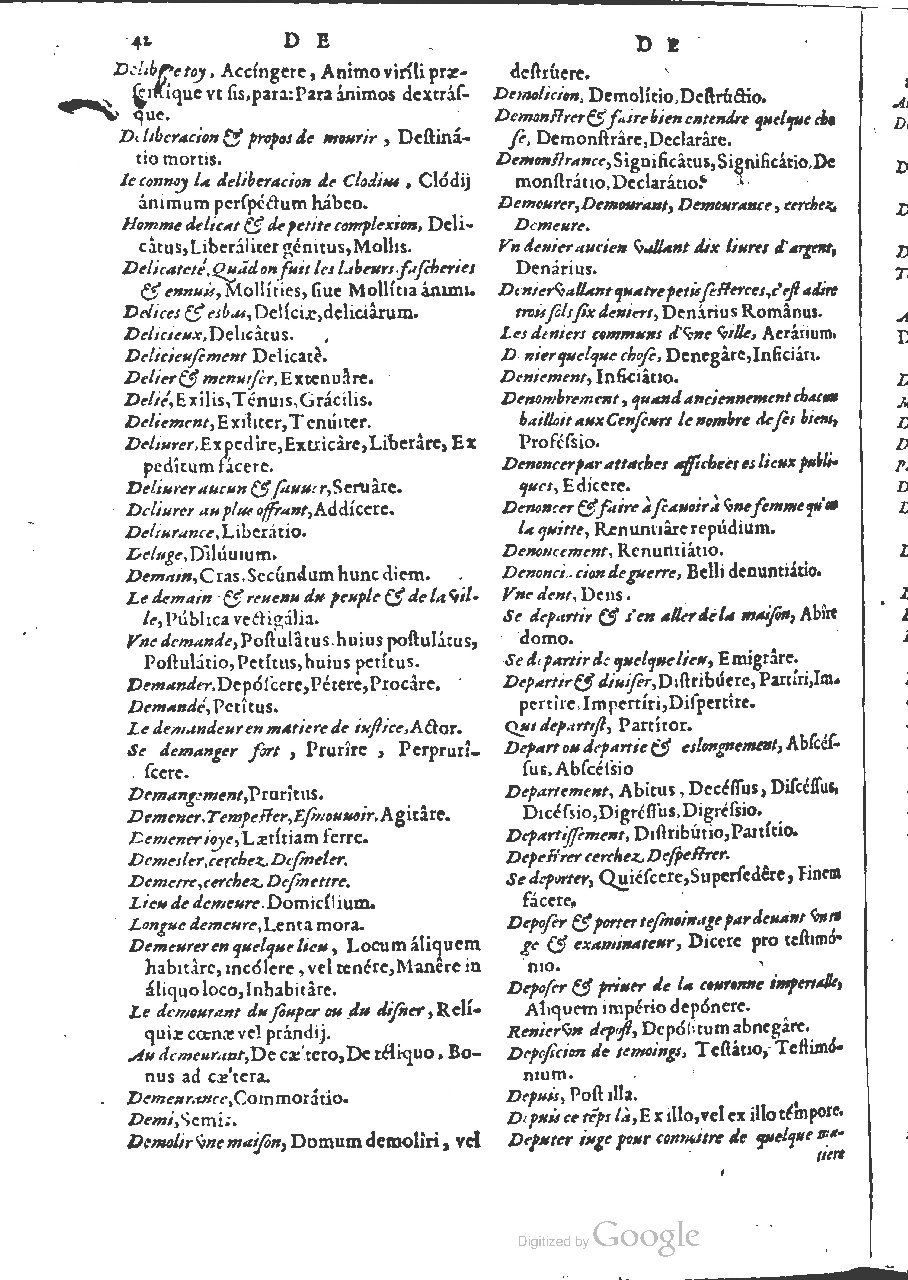 42 D E
D E
Delibere toy, Accíngere, Animo viríli præ-
sentíque vt sis, para: Para ánimos dextrás-
que.
Deliberacion & propos de mourir, Destiná-
tio mortis.
Ie connoy la deliberacion de Clodius, Clódij
ánimum perspéctum hábeo.
Homme delicat & de petite complexion, Deli-
câtus, Liberáliter génitus, Mollis.
Delicateté, Quãd on fuit les labeurs, fascheries
& ennuis, Mollíties, siue Mollítia ánimi.
Delices & esbas, Delíciæ, deliciârum.
Delicieux, Delicâtus.
Delicieusement Delicatè.
Delier & menuiser, Extenuâre.
Delié, Exilis, Ténuis, Grácilis.
Deliement, Exíliter, Tenúiter.
Deliurer, Expedîre, Extricâre, Liberâre, Ex
pedîtum fácere.
Deliurer aucun & sauuer, Seruâre.
Deliurer au plus offrant, Addícere.
Deliurance, Liberátio.
Deluge, Dilúuium.
Demain, Cras, Secúndum hunc diem.
Le demain & reuenu du peuple & de la vil-
le, Pública vectigália.
Vne demande, Postulâtus, huius postulátus,
Postulátio, Petîtus, huius petítus.
Demander, Depóscere, Pétere, Procâre.
Demandé, Petîtus.
Le demandeur en matiere de iustice, Actor.
Se demanger fort, Prurîre, Perprurî-
scere.
Demangement, Prurîtus.
Demener, Tempester, Esmouuoir, Agitâre.
Demener ioye, Lætítiam ferre.
Demesler, cerchez Desmeler.
Demetre, cerchez Desmettre.
Lieu de demeure, Domicílium.
Longue demeure, Lenta mora.
Demeurer en quelque lieu, Locum áliquem
habitâre, incólere, vel tenére, Manêre in
áliquo loco, Inhabitâre.
Le demourant du souper ou du disner, Relí-
quiæ cœnæ vel prándij.
Au demeurant, De cæ'tero, De réliquo, Bo-
nus ad cæ'tera.
Demeurance, Commorátio.
Demi, Semis.
Demolir vne maison, Domum demoliri, vel
destrúere.
Demolicion, Demolítio, Destrúctio.
Demonstrer & faire bien entendre quelque cho
se, Demonstrâre, Declarâre.
Demonstrance, Significâtus, Significátio, De
monstrátio, Declarátio.
Demourer, Demourant, Demourance, cerchez
Demeure.
Vn denier aucien vallant dix liures d'argent,
Denárius.
Denier vallant quatre petis sesterces, c'est adire
trois sols six deniers, Denárius Românus.
Les deniers communs d'vne ville, Aerárium.
Denier quelque chose, Denegâre, Inficiári.
Deniement, Inficiâtio.
Denombrement, quand anciennement chacun
bailloit aux Censeurs le nombre de ses biens,
Proféssio.
Denoncer par attaches affichees es lieux publi-
ques, Edícere.
Denoncer & faire à scauoir à vne femme qu'on
la quitte, Renuntiâre repúdium.
Denoncement, Renuntiátio.
Denonciacion de guerre, Belli denuntiátio.
Vne dent, Dens.
Se departir & s'en aller de la maison, Abîre
domo.
Se departir de quelque lieu, Emigrâre.
Departir & diuiser, Distribúere, Partíri, Im-
pertîre, Impertíri, Dispertîre.
Qui departist, Partítor.
Depart ou departie & eslongnement, Abscés-
sus, Abscéssio
Departement, Abitus, Decéssus, Discéssus,
Dicéssio, Digréssus, Digréssio.
Departissement, Distribútio, Partítio.
Depestrer cerchez Despestrer.
Se deporter, Quiéscere, Supersedêre, Finem
fácere,
Deposer & porter tesmoinage par deuant vn iu
ge & examinateur, Dicere pro testimó-
nio.
Deposer & priuer de la couronne imperialle,
Aliquem império depónere.
Renier vn depost, Depósitum abnegâre.
Deposicion de temoings, Testâtio, Testimó-
nium.
Depuis, Post illa.
Depuis ce tẽps là, Ex illo, vel ex illo témpore.
Deputer iuge pour connuitre de quelque ma-
tiere
Digitized by Google